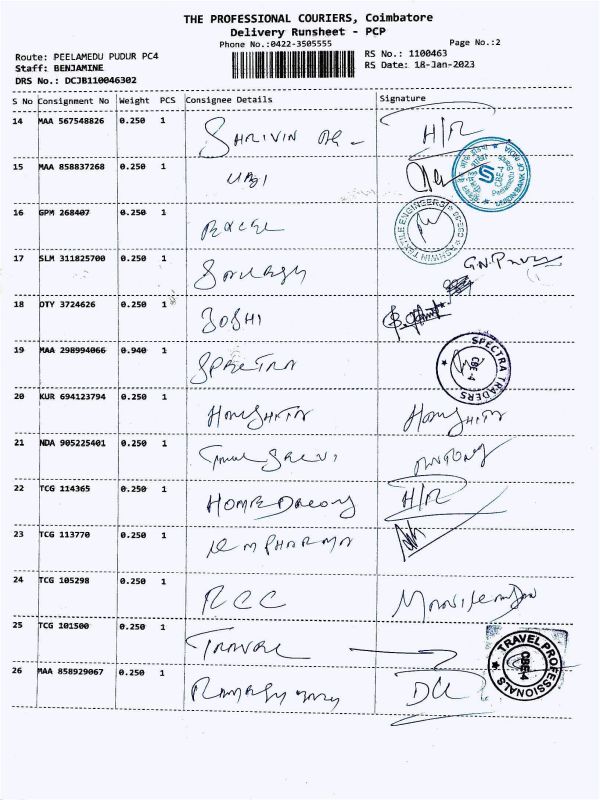 THE PROFESSIONAL COURIERS, Coimbatore
Delivery Runsheet - PCP
Phone No.:0422-3505555
Page No.:2
Route: PEELAMEDU PUDUR PC4
RS No.: 1100463
Staff: BENJAMINE
RS Date: 18-Jan-2023
DRS No.: DCJB110046302
S No Consignment No Weight PCS Consignee Details Signature
14 MAA 567548826 0.250 1 SHRIVIN H/R
15 MAA 858837268 0.250 1 UBI
UNION BANK OF INDIA CBE-4
16 GPM 268407 0.250 1
ASHWIN TEXTILE ENGINEERS
17 SLM 311825700 0.250 1
18 DTY 3724626 0.250 1 JOSHI
19 MAA 298994066 0.940 1 SPECTRA
SPECTRA TRADERS CBE-4
20 KUR 694123794 0.250 1
21 NDA 905225401 0.250 1
22 TCG 114365 0.250 1 HOME H/R
23 TCG 113770 0.250 1 PHARMA
24 TCG 105298 0.250 1 RCC
25 TCG 101500 0.250 1 TRAVEL
TRAVEL PROFESSIONALS CBE-4
26 MAA 858929067 0.250 1